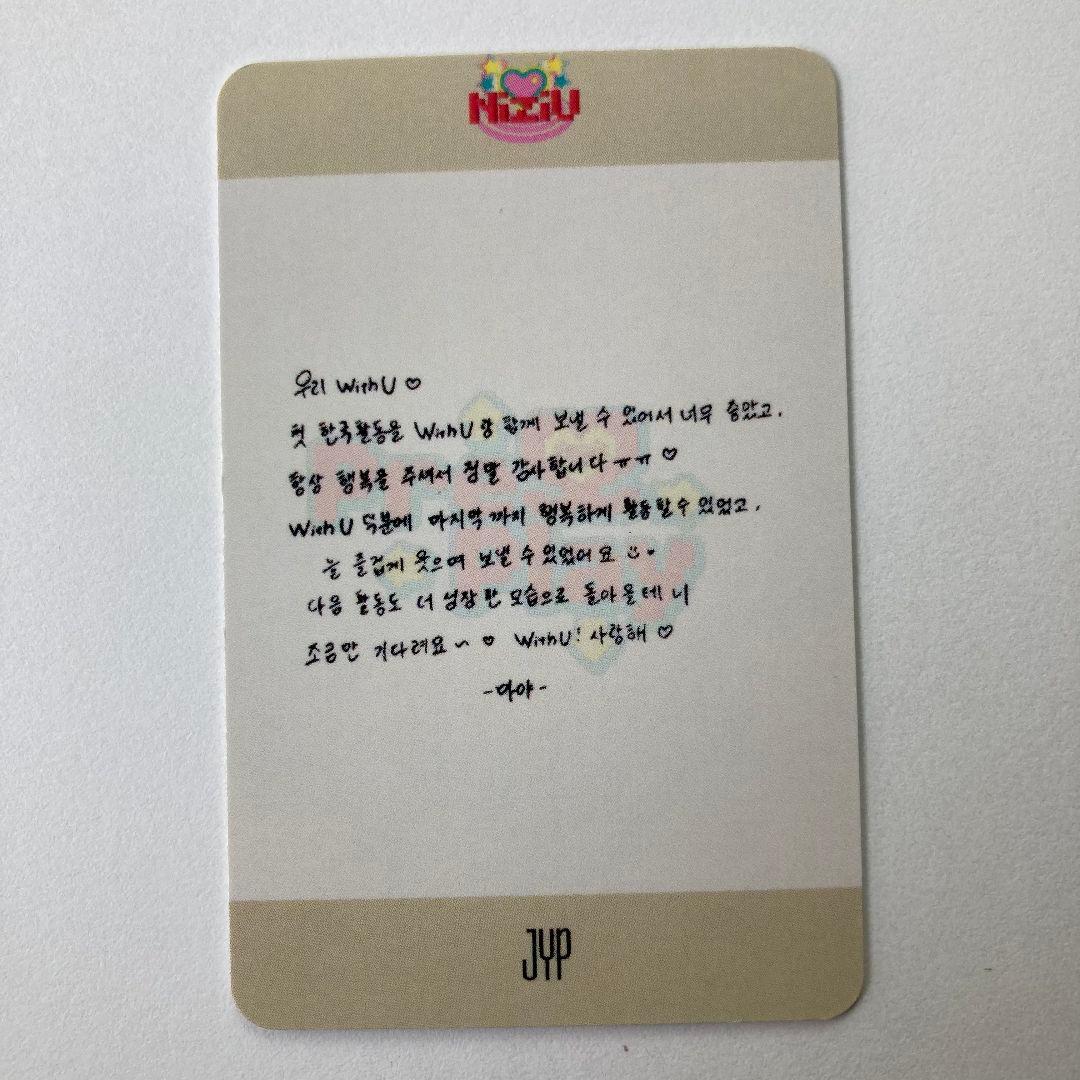 NiziU
우리 WithU ♡
첫 한국활동을 WithU랑 함께 보낼 수 있어서 너무 좋았고,
항상 행복을 주셔서 정말 감사합니다 ㅠㅠ ♡
WithU 덕분에 마지막까지 행복하게 활동할 수 있었고,
늘 즐겁게 웃으며 보낼 수 있었어요
다음 활동도 더 성장한 모습으로 돌아올테니
조금만 기다려요~ ♡ WithU! 사랑해 ♡
-마야-
Press Play
JYP